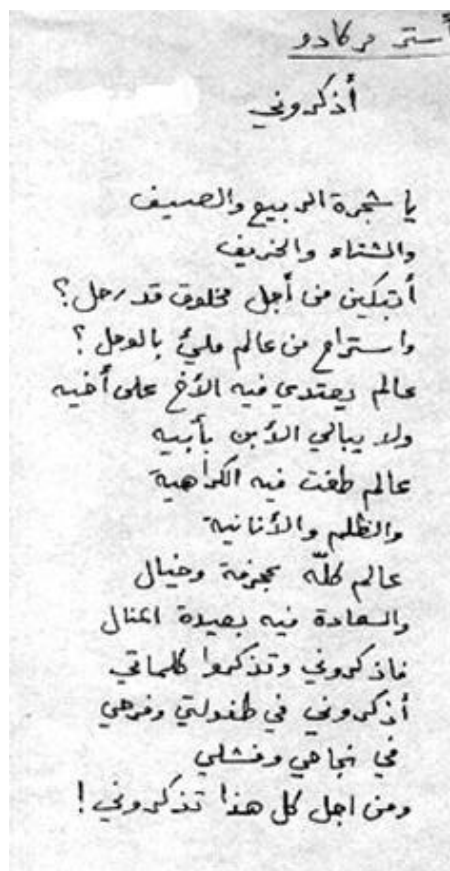 أستر مركادو
أذكروني
يا شجرة الربيع والصيف
والشتاء والخريف
أتبكين من أجل مخلوق قد رحل؟
واستراح من عالم مليئ بالوحل؟
عالم يعتدي فيه الأخ على أخيه
ولا يبالي الأبن بأبيه
عالم طغت فيه الكراهية
والظلم والأنانية
عالم كلّه عجرفة وخيال
والسعادة فيه بعيدة المنال
فاذكروني وتذكروا كلماتي
أذكروني في طفولتي وفرحي
في نجاحي وفشلي
ومن اجل كل هذا تذكروني!